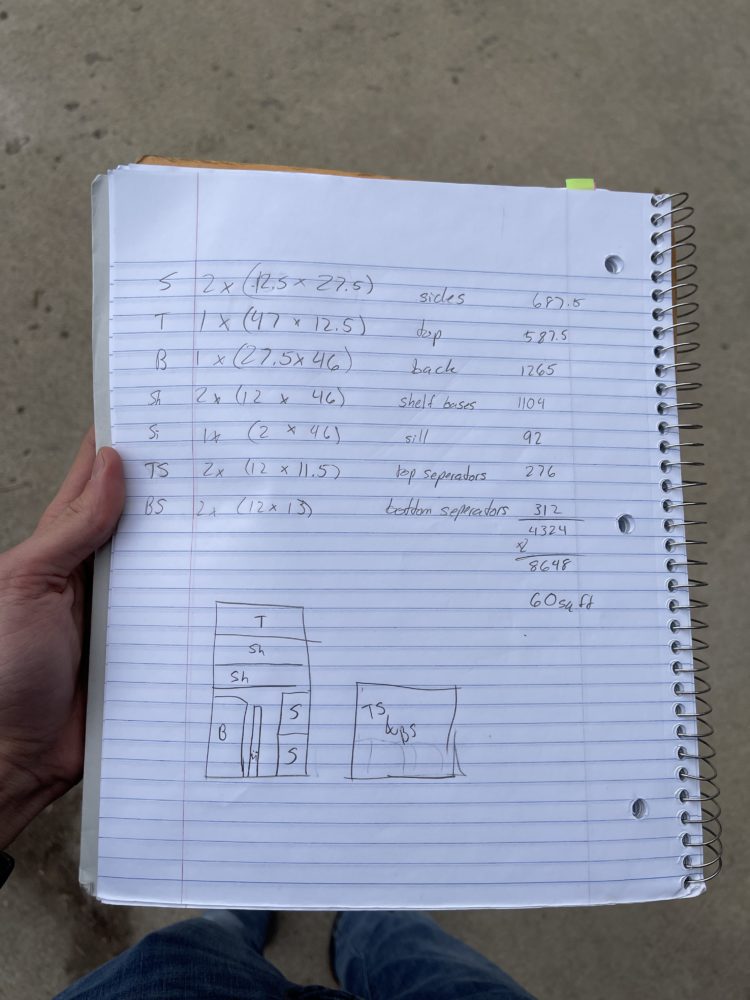 S 2 x (12.5 x 27.5) sides 687.5
T 1 x (47 x 12.5) top 587.5
B 1 x (27.5 x 46) back 1265
Sh 2 x (12 x 46) shelf bases 1104
Si 1x (2 x 46) sill 92
TS 2x (12 x 11.5) top seperadors 276
BS 2x (12 x 13) bottom seperadors 312
4324
x2
8648
60 sq ft
T
Sh
Sh
B
S
S
TS
BS